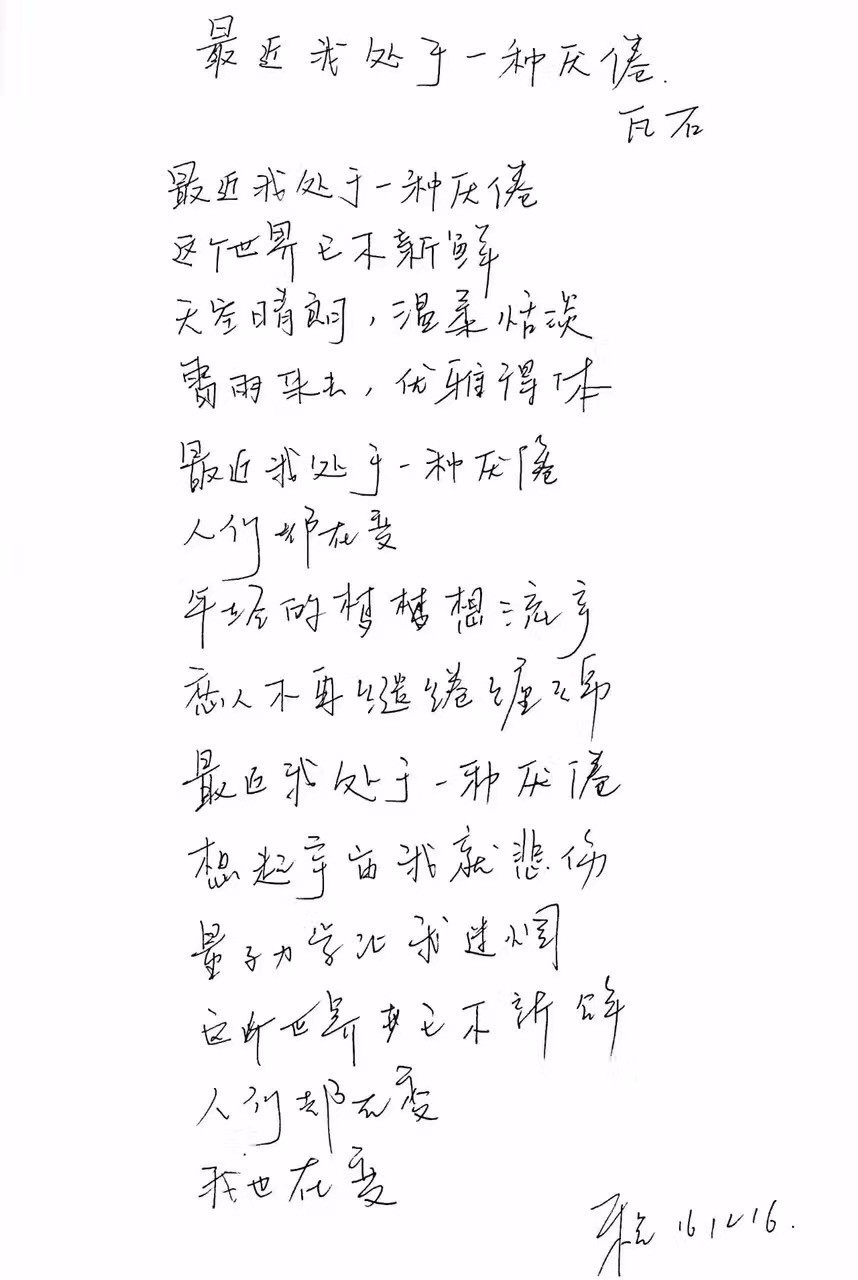 最近我处于一种厌倦.
瓦石
最近我处于一种厌倦
这个世界已不新鲜
天空晴朗，温柔恬淡
雷雨来去，优雅得体
最近我处于一种厌倦
人们都在变
年轻的梦梦想流亨
恋人不再缱绻缠绵
最近我处于一种厌倦
想起宇宙我就悲伤
量子力学让我迷惘
这世界已不新鲜
人们却在变
我也在变
16.12.16.